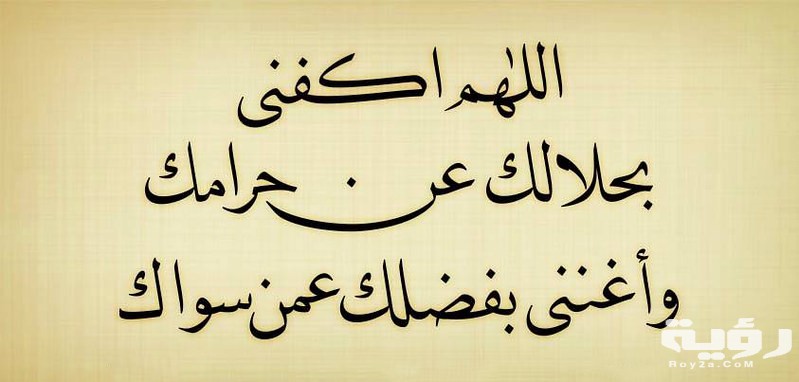 اللهم اكفنى
بحلالك عن حرامك
وأغننى بفضلك عمن سواك
رؤية
Roy2a.CoM